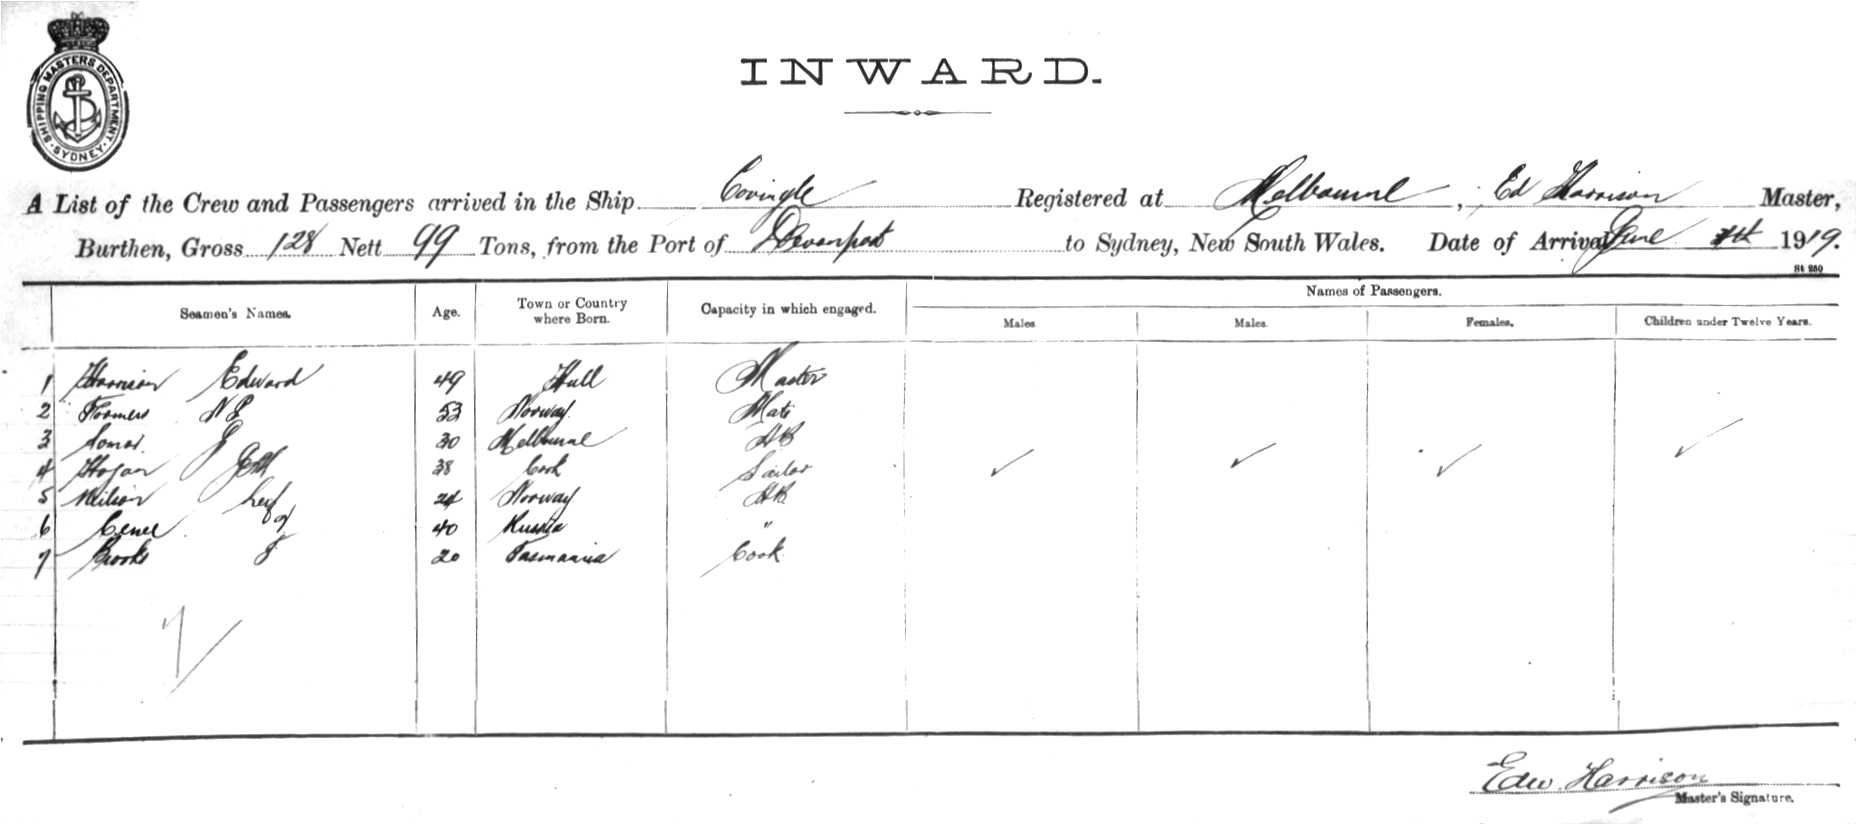 SHIPPING MASTERS DEPARTMENT. SYDNEY.
INWARD.
A List of the Crew and Passengers arrived in the Ship Registered at Melbourne, Ed Harrison Master,
Burthen, Gross 128 Nett 99 Tons, from the Port of Devonport to Sydney, New South Wales. Date of Arrival June 1919.
St 280
Seamen's Names. Age. Town or Country where Born. Capacity in which engaged. Names of Passengers.
Males Males Females. Children under Twelve Years.
1 Harrison Edward 49 Hull Master
2 53 Norway Mate
3 30 Melbourne AB
4 Hogan 38 Cork Sailor
5 Neilson Leif 24 Norway AB
6 40 Russia "
7 Brooks 20 Tasmania Cook
7
Edw Harrison
Master's Signature.